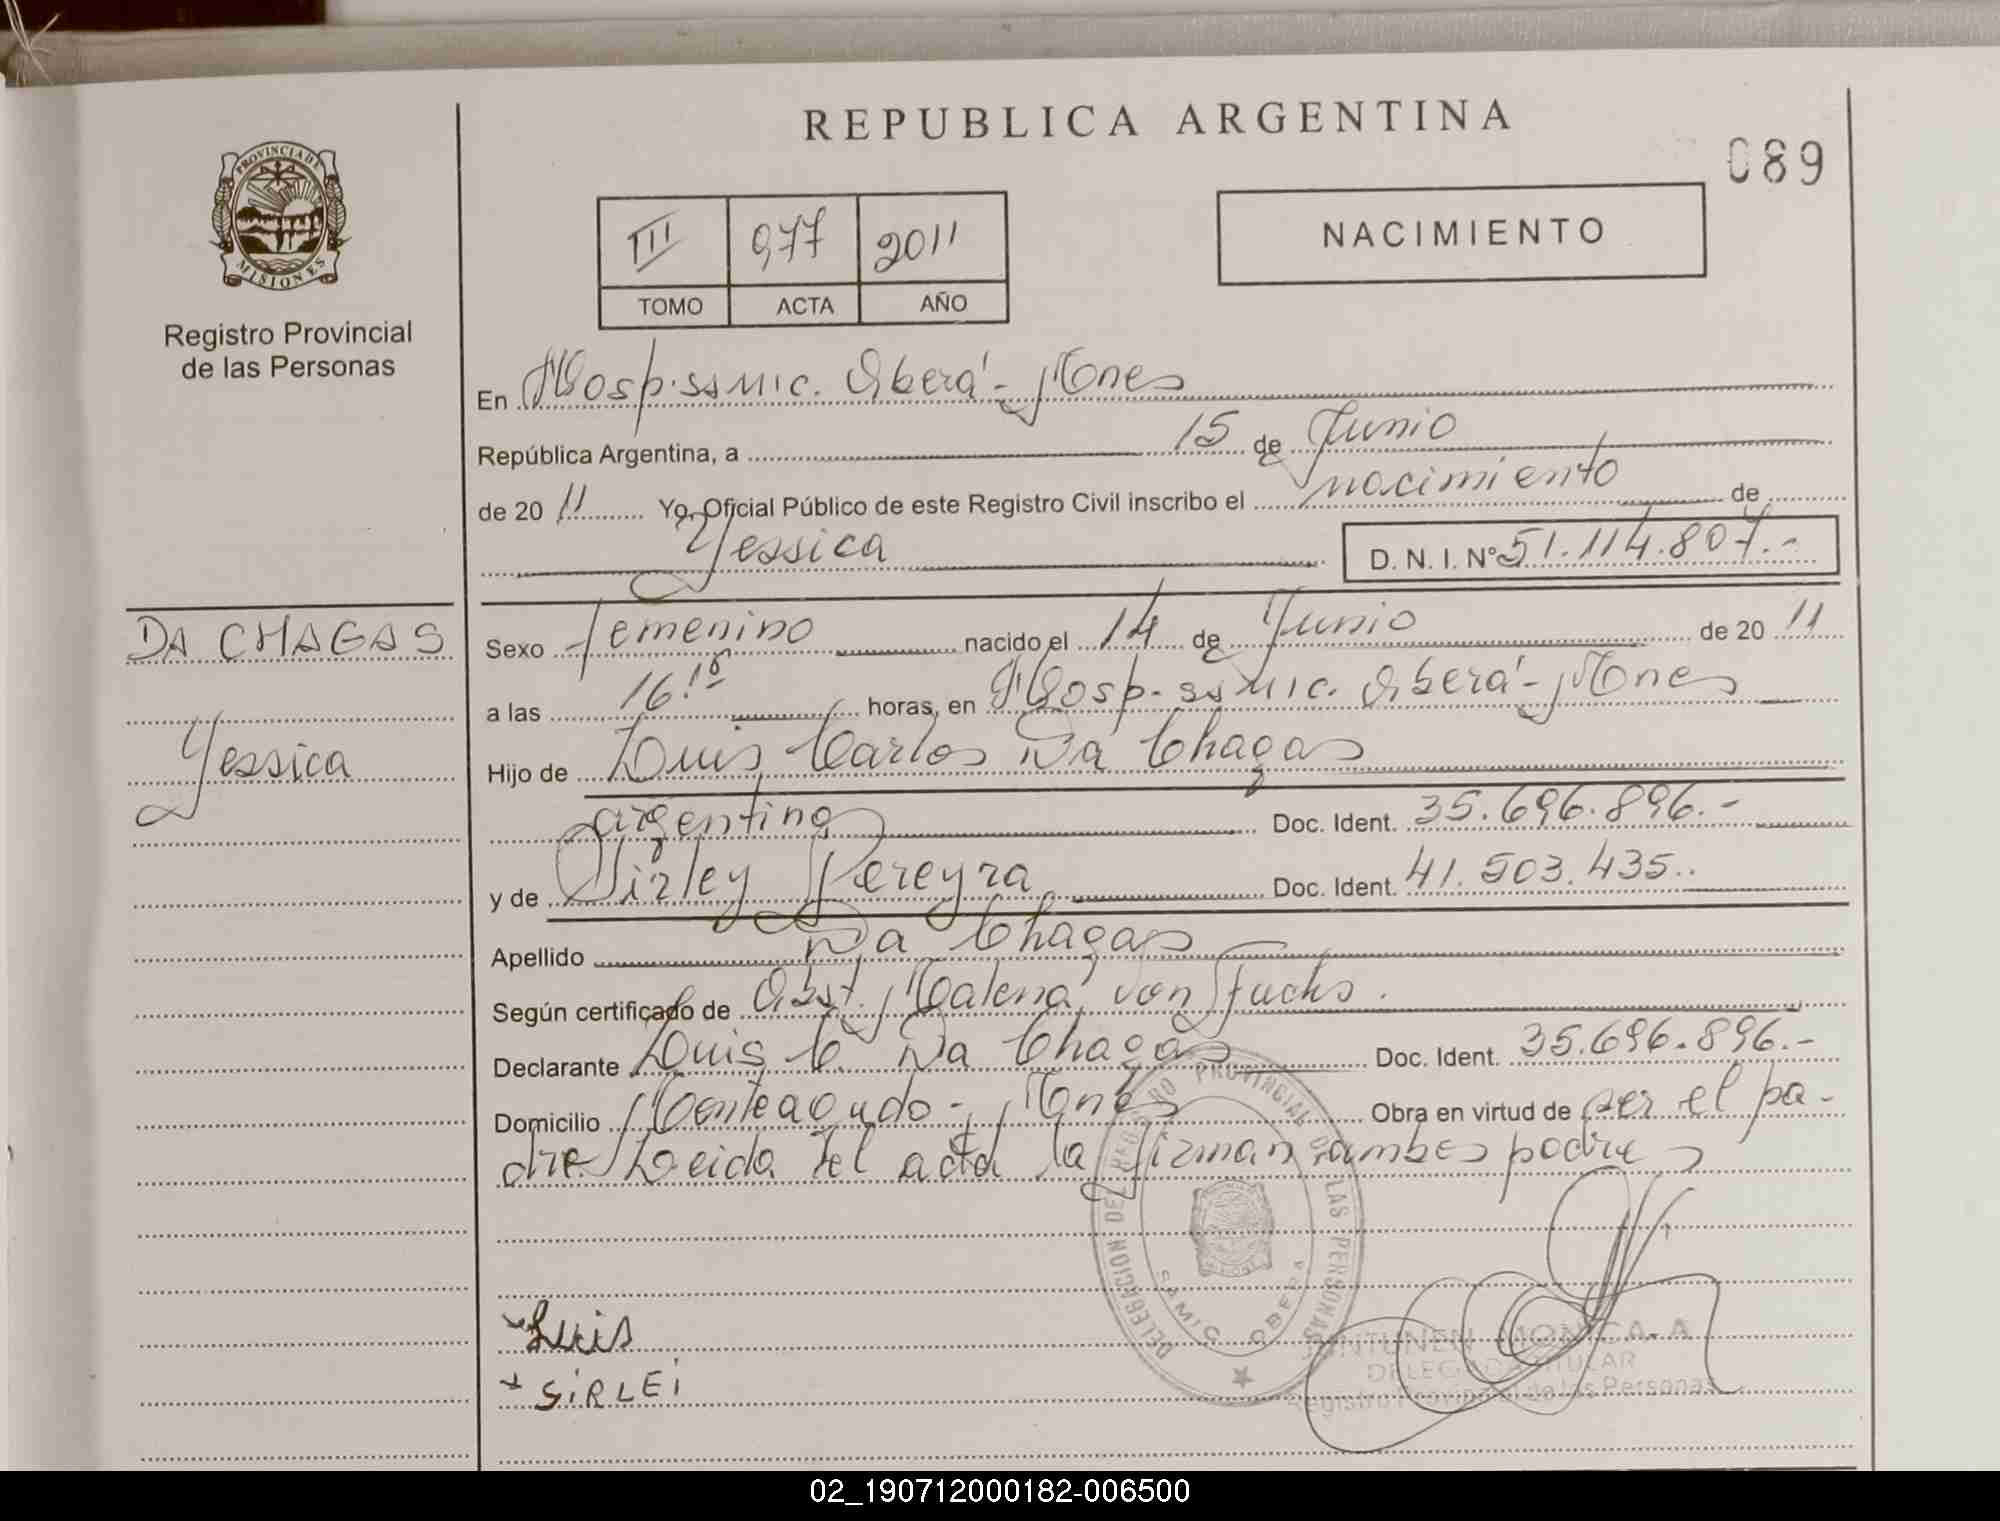 REPUBLICA ARGENTINA
089
PROVINCIA DE
MISIONES
Registro Provincial
de las Personas
III 977 2011
TOMO ACTA AÑO
NACIMIENTO
En Hosp. ss Mic. Oberá - Mnes
República Argentina, a 15 de Junio
de 20 11 Yo, Oficial Público de este Registro Civil inscribo el nacimiento de
Yessica D. N. I. Nº 51.114.807.-
DA CHAGAS
Yessica
Sexo femenino nacido el 14 de Junio de 20 11
a las 16.10 horas, en Hosp. ss Mic. Oberá - Mnes
Hijo de Luis Carlos Da Chagas
argentino Doc. Ident. 35.696.896.-
y de Sirley Pereyra Doc. Ident. 41.503.435..
Apellido Da Chagas
Según certificado de Obst. Malena von Fuchs.
Declarante Luis C. Da Chagas Doc. Ident. 35.696.896.-
Domicilio Monteagudo - Mnes Obra en virtud de ser el pa-
dre. Leida el acta la firman ambos padres
DELEGACION DEL REGISTRO PROVINCIAL DE LAS PERSONAS
SAMIC OBERA
Luis
SiRLEi
MONICA A
DELEGADA TITULAR
Registro Provincial de las Personas
02_190712000182-006500